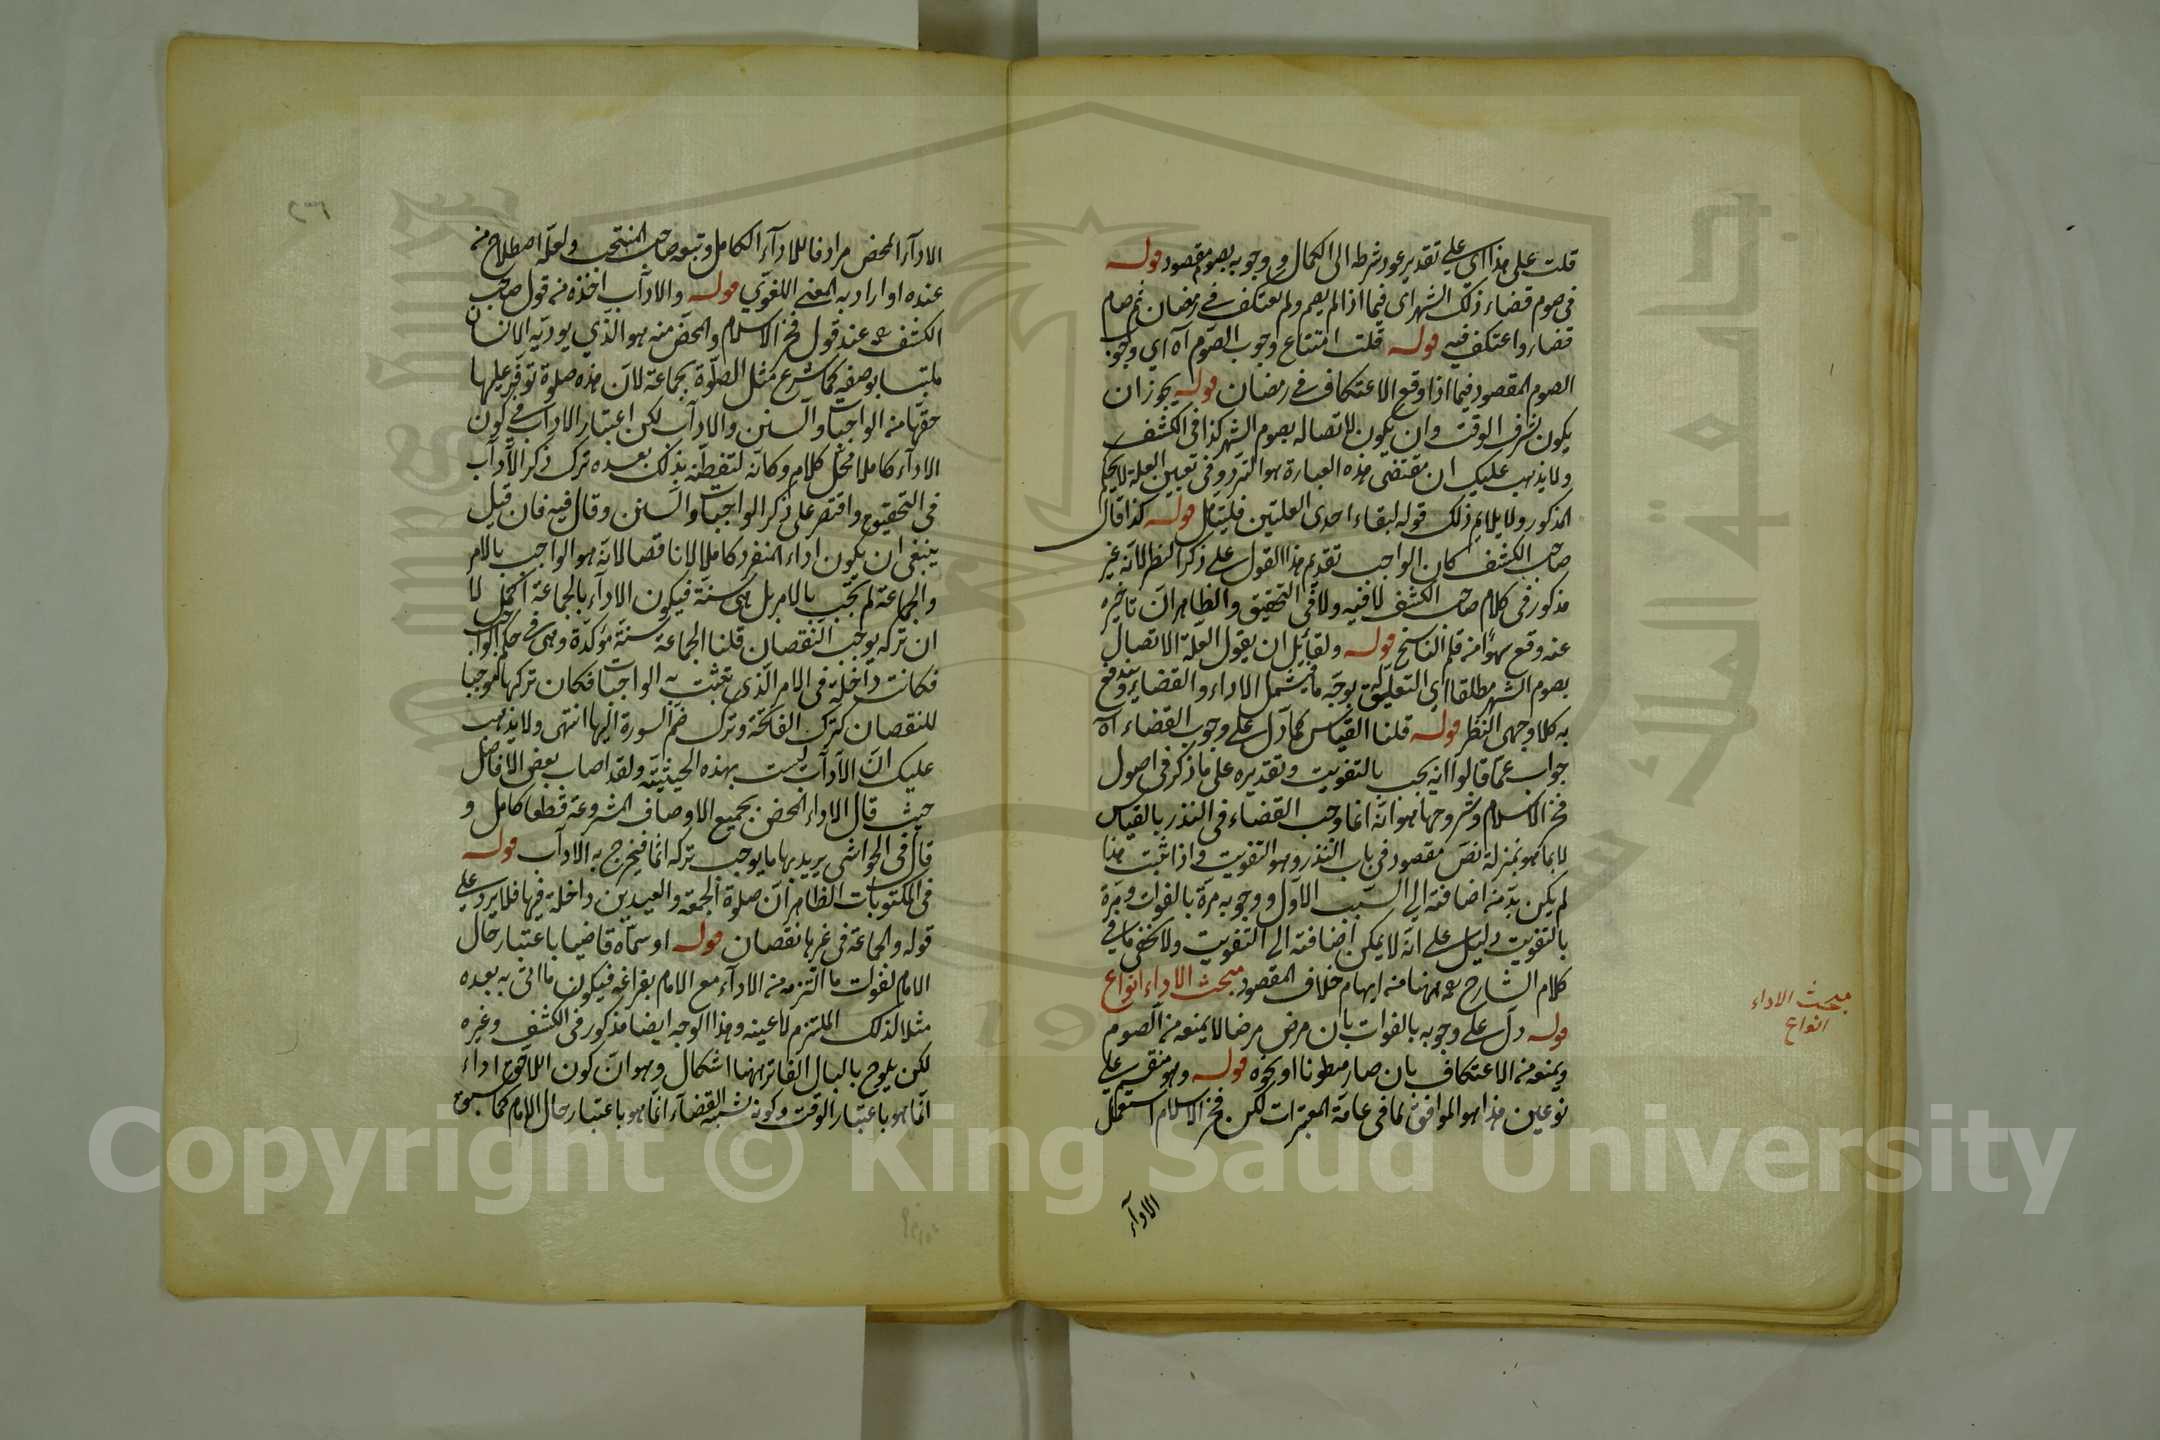 قلت على هذا اي على تقدير عود شرطه الى الكمال و وجوبه بصوم مقصود قوله
في صوم قضاء ذلك الشهر اي فيما اذا لم يصم ولم يعتكف في رمضان ثم صام
قضاء واعتكف فيه قوله قلت امتناع وجوب الصوم آه اي وجوب
الصوم المقصود فيما اذا وقع الاعتكاف في رمضان قوله يجوز ان
يكون لشرف الوقت وان يكون لاتصاله بصوم الشهر كذا في الكشف
ولا يذهب عليك ان مقتضى هذه العبارة هو التردد في تعيين العلة لا الحكم
المذكور ولا يلايم ذلك قوله لبقاء احدى العلتين فليتأمل قوله كذا قال
صاحب الكشف كان الواجب تقديم هذا القول على ذكر النظر لانه غير
مذكور في كلام صاحب الكشف لا فيه ولا في التحقيق والظاهر ان تأخيره
عنه وقع سهوا من قلم الناسخ قوله ولقايل ان يقول العلة الاتصال
بصوم الشهر مطلقا اي التعليق بوجه ما يشمل الاداء والقضاء ويندفع
به كلا وجهي النظر قوله قلنا القياس كما دل على وجوب القضاء آه
جواب عما قالوا انه يجب بالتفويت وتقديره على ما ذكر في اصول
فخر الاسلام وشروحها هو انه انما وجب القضاء في النذر بالقياس
لا بما هو بمنزلة نص مقصود في باب النذر وهو التفويت واذا ثبت هذا
لم يكن بد من اضافته الى السبب الاول ووجوبه مرة بالفوات ومرة
بالتفويت دليل على انه لا يمكن اضافته الى التفويت ولا يخفى ما في
كلام الشارح رحمه ههنا من ايهام خلاف المقصود مبحث الاداء انواع
قوله دل على وجوبه بالفوات بان مرض مرضا لا يمنعه من الصوم
ويمنعه من الاعتكاف بان صار مبطونا او نحوه قوله وهو منقسم على
نوعين هذا هو الموافق لما في عامة المعتبرات لكن فخر الاسلام استعمل
الاداء
مبحث الاداء
انواع
الاداء المحض مرادفا للاداء الكامل وتبعه صاحب المنتخب ولعله اصطلاح منه
عنده او اراد به المعنى اللغوي قوله والاداب اخذه من قول صاحب
الكشف رحمه عند قول فخر الاسلام والمحض منه هو الذي يوديه الانسان
ملتبسا بوصفه كما شرع مثل الصلوة بجماعة لان هذه صلوة توفر عليها
حقها من الواجبات والسنن والاداب لكن اعتبار الاداب في كون
الاداء كاملا محل كلام وكانه لتفطنه بذلك بعده ترك ذكر الآداب
في التحقيق واقتصر على ذكر الواجبات والسنن وقال فيه فان قيل
ينبغي ان يكون اداء المنفرد كاملا لا ناقصا لانه هو الواجب بالامر
والجماعة لم تجب بالامر بل هي سنة فيكون الاداء بالجماعة اكمل لا
ان تركه يوجب النقصان قلنا الجماعة سنة مؤكدة وهي في حكم الواجب
فكانت داخلة في الامر الذي تثبت به الواجبات فكان تركها موجبا
للنقصان كترك الفاتحة وترك ضم السورة اليها انتهى ولا يذهب
عليك ان الآداب ليست بهذه الحيثية ولقد اصاب بعض الافاضل
حيث قال الاداء المحض بجميع الاوصاف المشروعة قطعا كامل و
قال في الحواشي يريد بها ما يوجب تركه اثما فيخرج به الاداب قوله
في المكتوبات الظاهر ان صلوة الجمعة والعيدين داخلة فيها فلا يرد على
قوله والجماعة في غيرها نقصان قوله او سماه قاضيا باعتبار حال
الامام لفوات ما التزمه من الاداء مع الامام بفراغه فيكون ما اتى به بعده
مثلا لذلك الملتزم لا عينه وهذا الوجه ايضا مذكور في الكشف وغيره
لكن يلوح بالبال الفاتر ههنا اشكال وهو ان كون اللاحق اداء
انما هو باعتبار الوقت وكونه شبيه القضاء انما هو باعتبار حال الامام كما سبق
Copyright © King Saud University